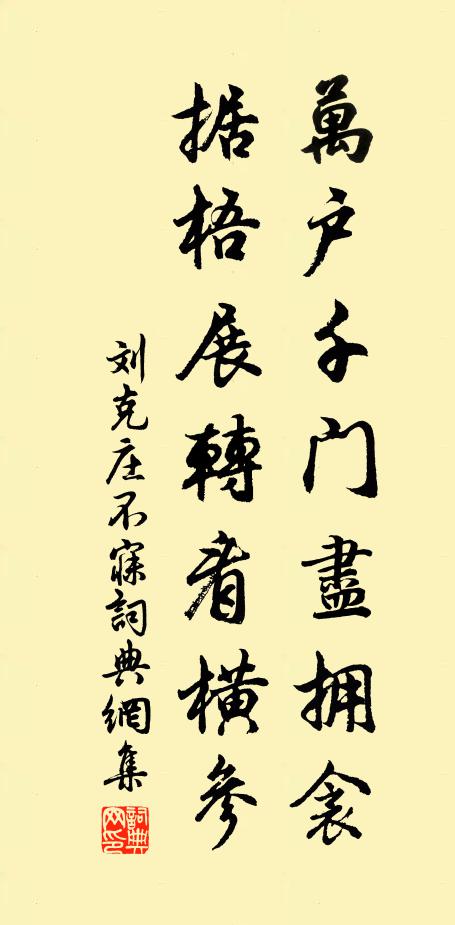 萬户千门盡拥衾
据梧展轉看横參
刘克庄不寐詞典網集
詞典网印